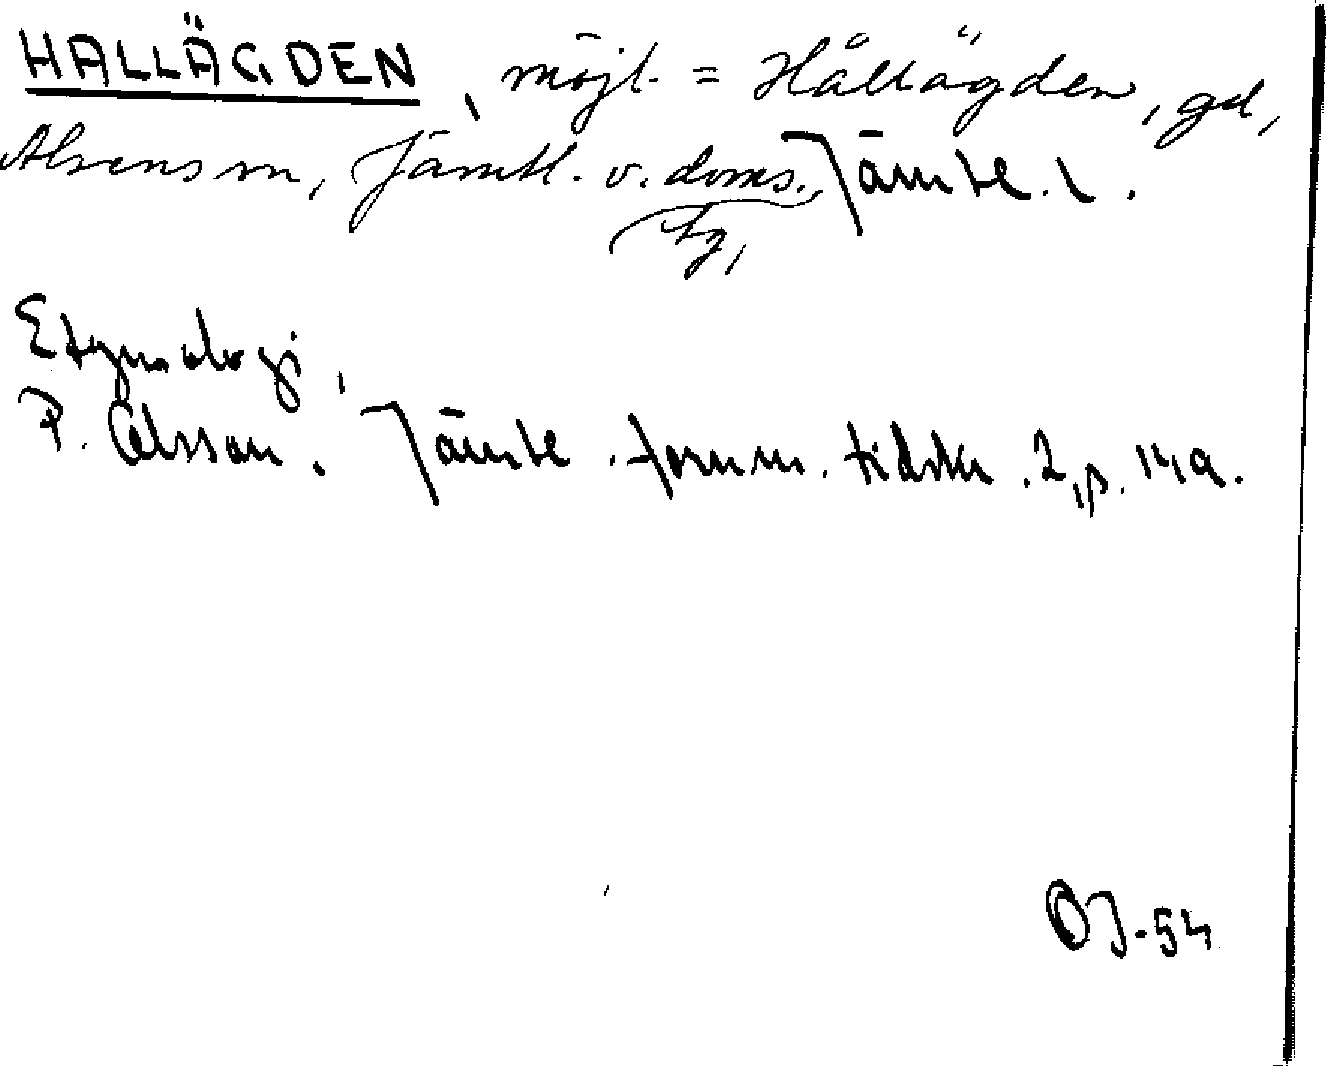 HALLÄGDEN, möjl. = Hållägden, gd,
Alsens sn, Jämtl. v. doms. Jämtl. l.
tg,
Etymologi,
P. Olsson. Jämtl. fornm. tidskr. 2, p.
OJ-54